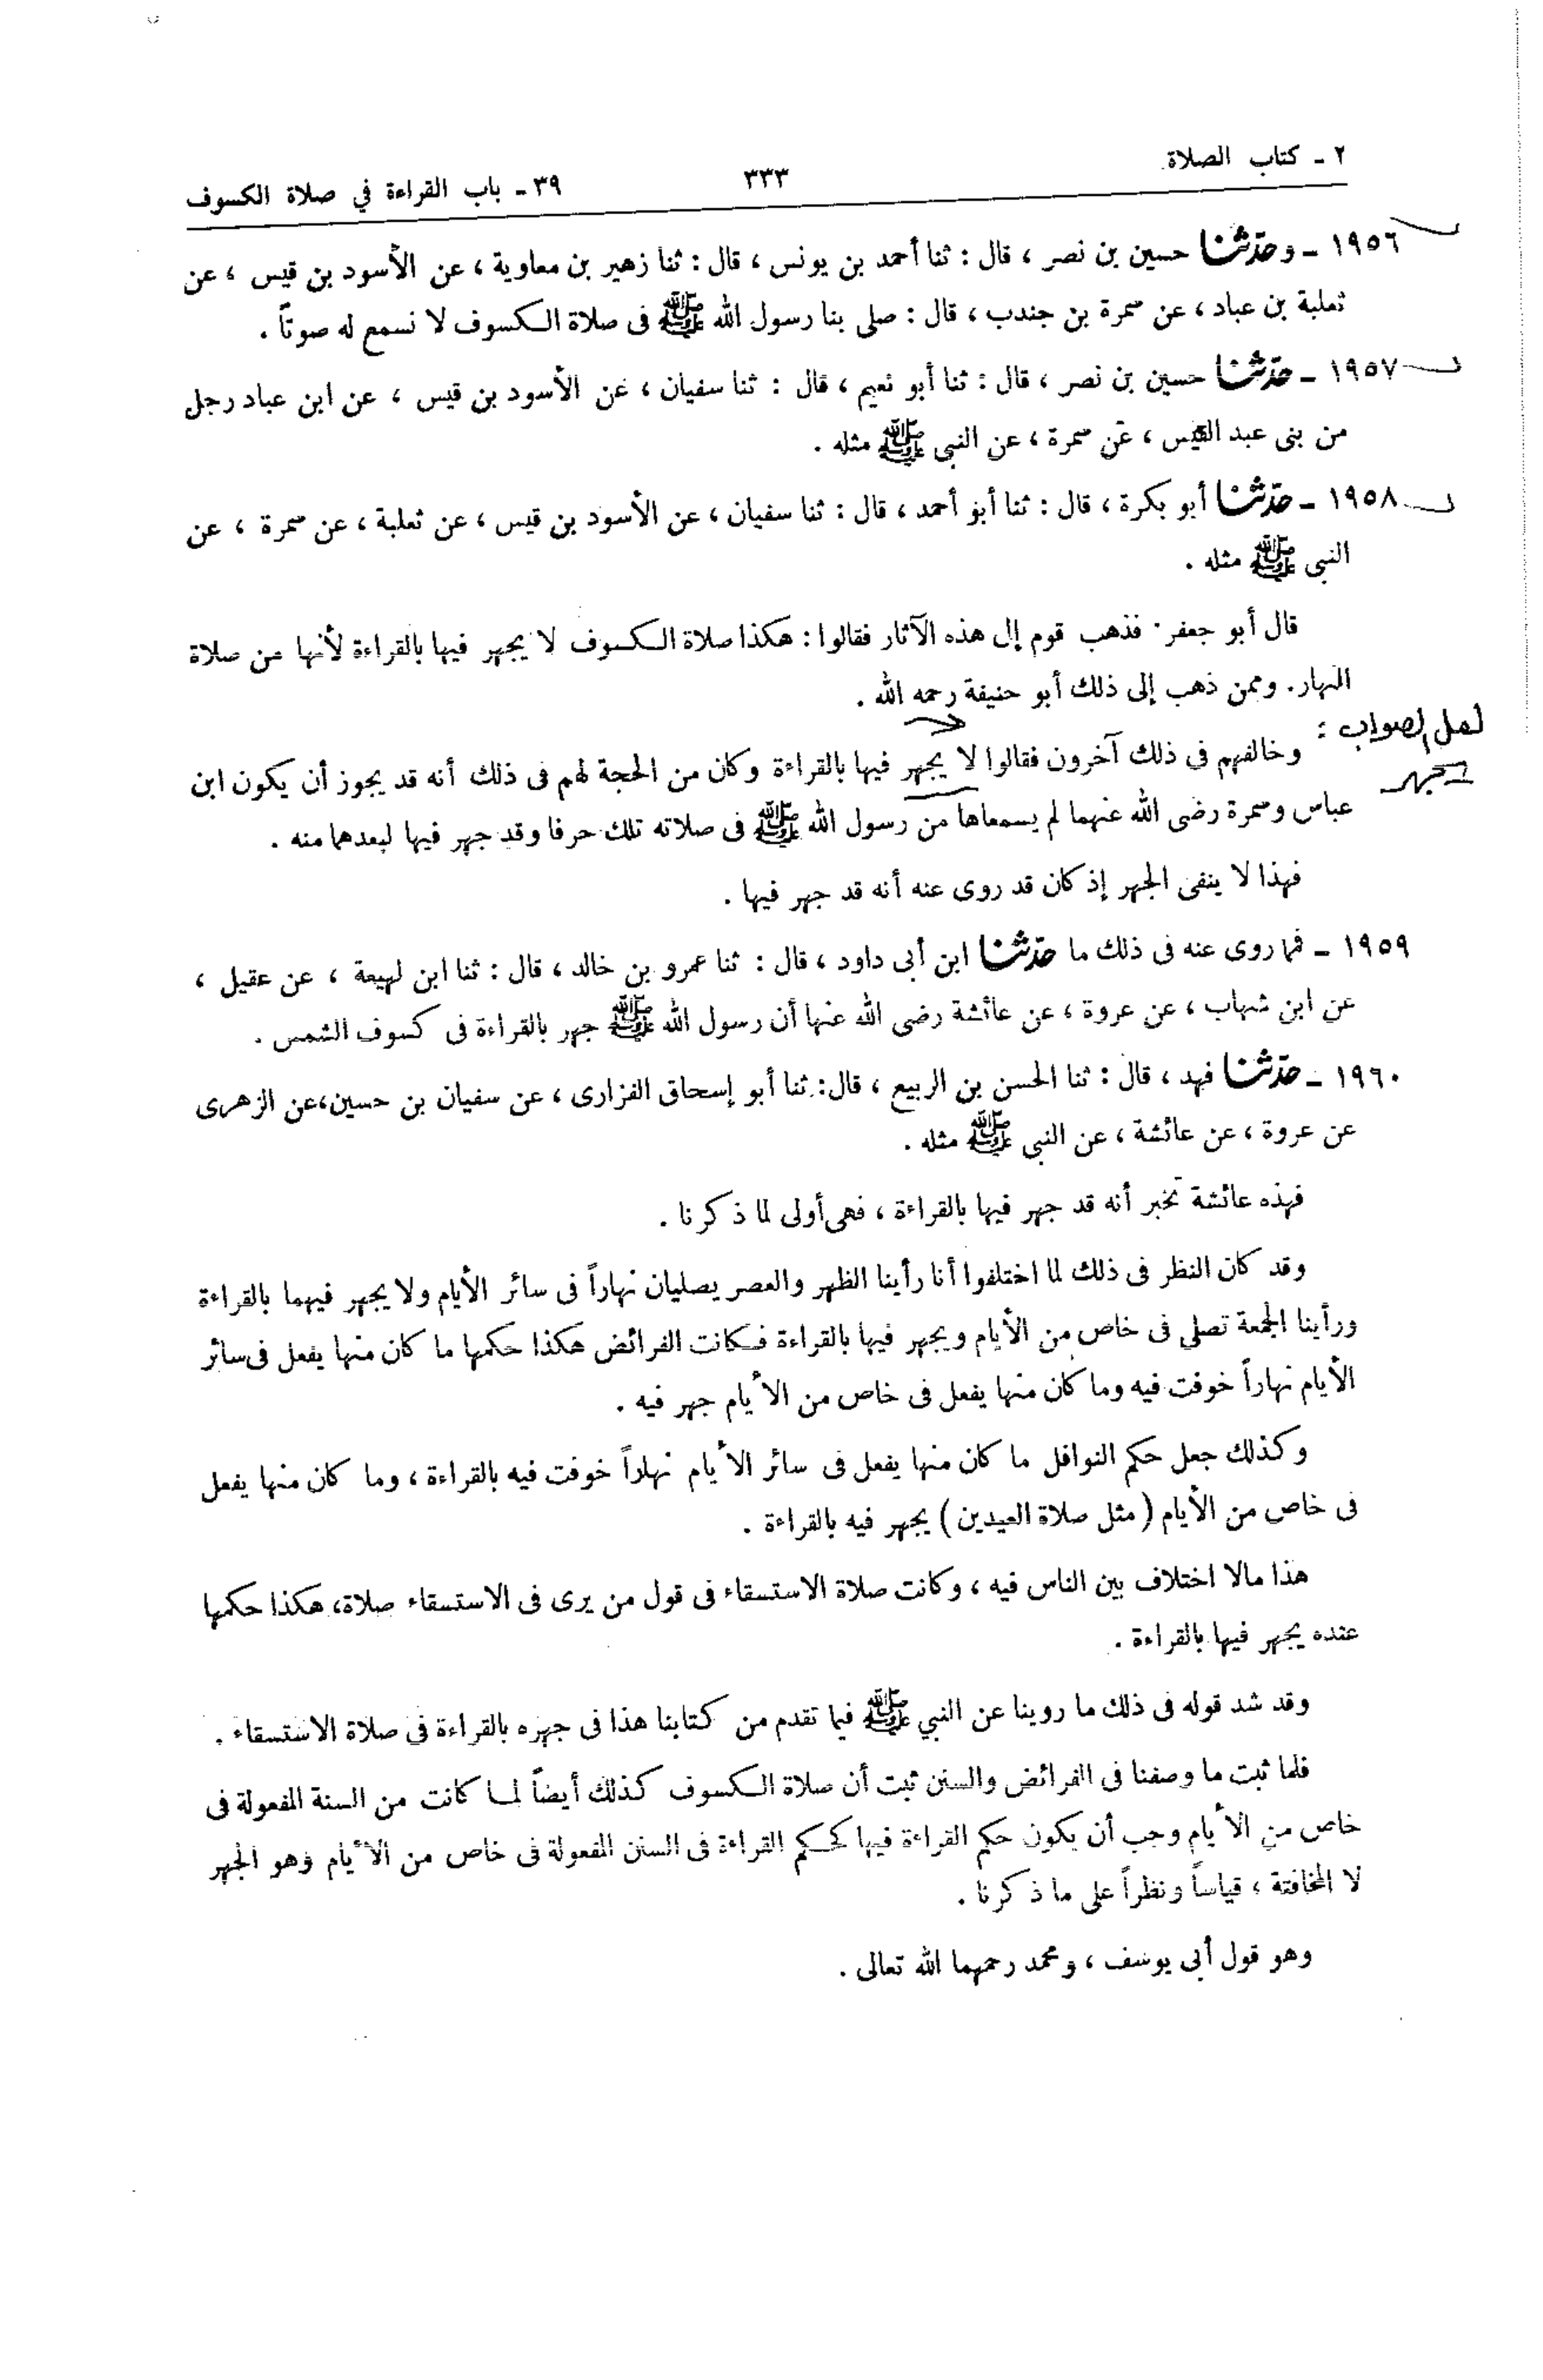 ٢ ـ كتاب الصلاة
٣٣٣
٣٩ ـ باب القراءة في صلاة الكسوف
١٩٥٦ ـ وحدّثنا حسين بن نصر ، قال : ثنا أحمد بن يونس ، قال : ثنا زهير بن معاوية ، عن الأسود بن قيس ، عن
ثعلبة بن عباد ، عن سمرة بن جندب ، قال : صلى بنا رسول الله ﷺ فى صلاة الكسوف لا نسمع له صوتاً .
١٩٥٧ ـ حدّثنا حسين بن نصر ، قال : ثنا أبو نعيم ، قال : ثنا سفيان ، عن الأسود بن قيس ، عن ابن عباد رجل
من بنى عبد القيس ، عن سمرة ، عن النبى ﷺ مثله .
١٩٥٨ ـ حدّثنا أبو بكرة ، قال : ثنا أبو أحمد ، قال : ثنا سفيان ، عن الأسود بن قيس ، عن ثعلبة ، عن سمرة ، عن
النبى ﷺ مثله .
قال أبو جعفر : فذهب قوم إلى هذه الآثار فقالوا : هكذا صلاة الكسوف لا يجهر فيها بالقراءة لأنها من صلاة
النهار . وممن ذهب إلى ذلك أبو حنيفة رحمه الله .
لعل الصواب :
يجهر
وخالفهم فى ذلك آخرون فقالوا لا يجهر فيها بالقراءة وكان من الحجة لهم فى ذلك أنه قد يجوز أن يكون ابن
عباس وسمرة رضى الله عنهما لم يسمعاها من رسول الله ﷺ فى صلاته تلك حرفا وقد جهر فيها لبعدهما منه .
فهذا لا ينفى الجهر إذ كان قد روى عنه أنه قد جهر فيها .
١٩٥٩ ـ فما روى عنه فى ذلك ما حدّثنا ابن أبى داود ، قال : ثنا عمرو بن خالد ، قال : ثنا ابن لهيعة ، عن عقيل ،
عن ابن شهاب ، عن عروة ، عن عائشة رضى الله عنها أن رسول الله ﷺ جهر بالقراءة فى كسوف الشمس .
١٩٦٠ ـ حدّثنا فهد ، قال : ثنا الحسن بن الربيع ، قال : ثنا أبو إسحاق الفزارى ، عن سفيان بن حسين ، عن الزهرى
عن عروة ، عن عائشة ، عن النبى ﷺ مثله .
فهذه عائشة تخبر أنه قد جهر فيها بالقراءة ، فهى أولى لما ذكرنا .
وقد كان النظر فى ذلك لما اختلفوا أنا رأينا الظهر والعصر يصليان نهاراً فى سائر الأيام ولا يجهر فيهما بالقراءة
ورأينا الجمعة تصلى فى خاص من الأيام ويجهر فيها بالقراءة فكانت الفرائض هكذا حكمها ما كان منها يفعل فى سائر
الأيام نهاراً خوفت فيه وما كان منها يفعل فى خاص من الأيام جهر فيه .
وكذلك جعل حكم النوافل ما كان منها يفعل فى سائر الأيام نهاراً خوفت فيه بالقراءة ، وما كان منها يفعل
فى خاص من الأيام ( مثل صلاة العيدين ) يجهر فيه بالقراءة .
هذا مالا اختلاف بين الناس فيه ، وكانت صلاة الاستسقاء فى قول من يرى فى الاستسقاء صلاة ، هكذا حكمها
عنده يجهر فيها بالقراءة .
وقد شد قوله فى ذلك ما روينا عن النبي ﷺ فيما تقدم من كتابنا هذا فى جهره بالقراءة فى صلاة الاستسقاء .
فلما ثبت ما وصفنا فى الفرائض والسنن ثبت أن صلاة الكسوف كذلك أيضاً لما كانت من السنة المفعولة فى
خاص من الأيام وجب أن يكون حكم القراءة فيها كحكم القراءة فى السنن المفعولة فى خاص من الأيام وهو الجهر
لا المخافتة ، قياساً ونظراً على ما ذكرنا .
وهو قول أبى يوسف ، ومحمد رحمهما الله تعالى .